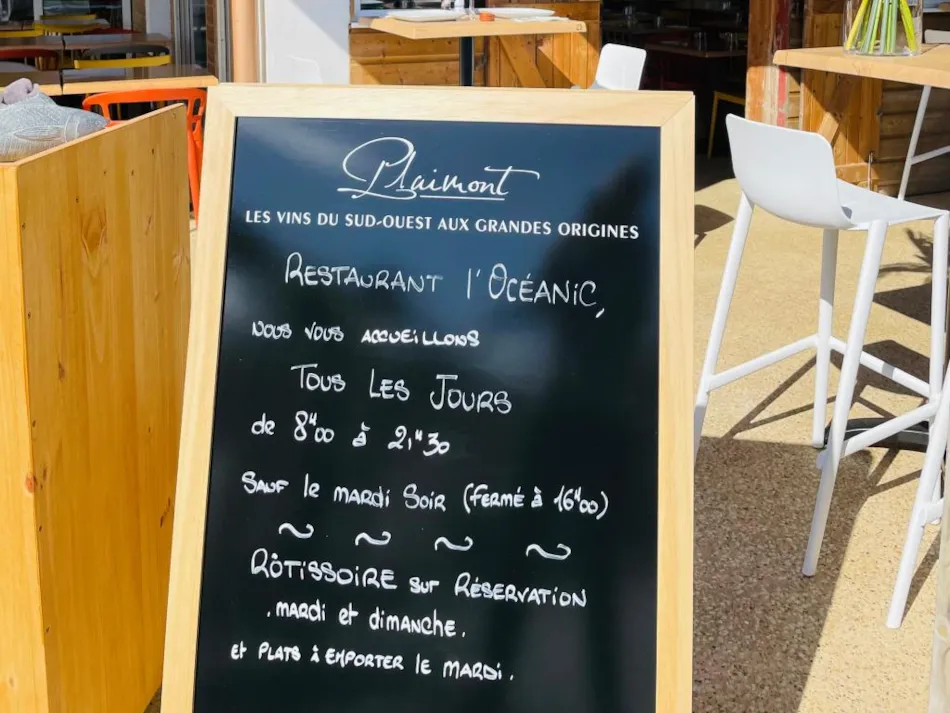 Plaimont
LES VINS DU SUD-OUEST AUX GRANDES ORIGINES
RESTAURANT l'OCÉANIC,
NOUS VOUS ACCUEILLONS
TOUS LES JOURS
de 8H00 à 21H30
SAUF le MARDI SOIR (FERMÉ à 16H00)
~ ~ ~ ~
RÔTISSOIRE sur RÉSERVATION
. MARDI et DIMANCHE.
et PLATS à EMPORTER le MARDI.